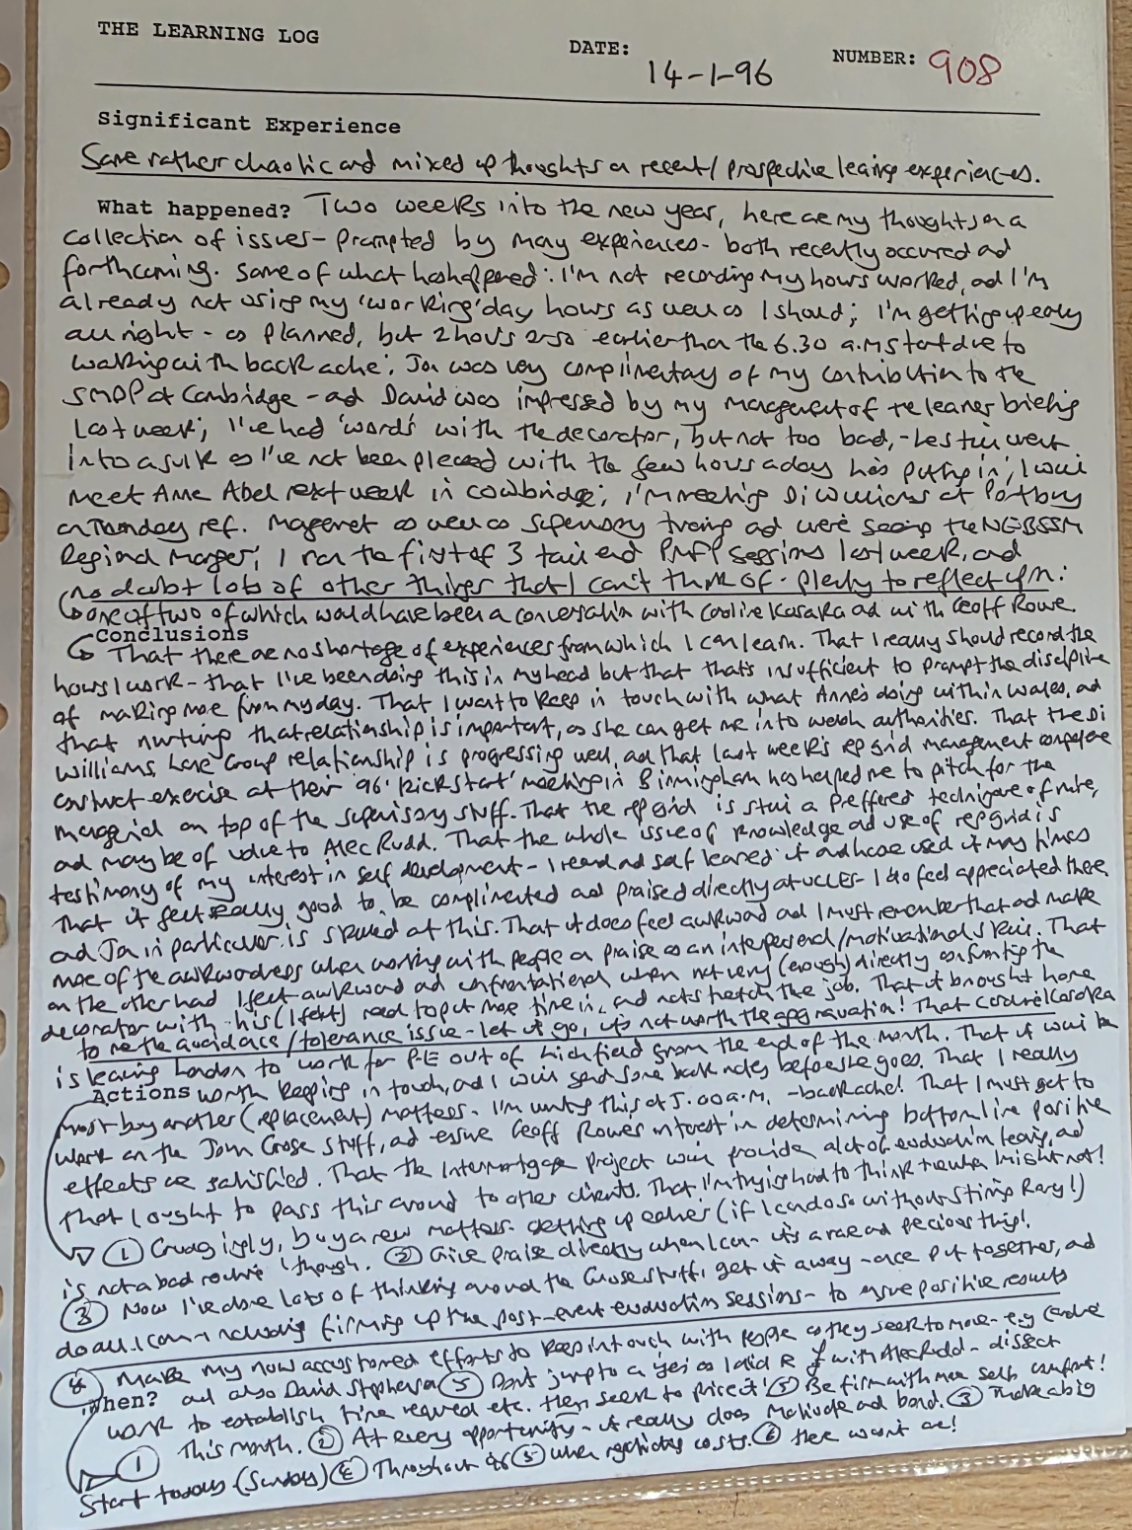 THE LEARNING LOG
DATE: 14-1-96 NUMBER: 908
Significant Experience
Some rather chaotic and mixed up thoughts on recent/prospective learning experiences.
What happened? Two weeks into the new year, here are my thoughts on a
collection of issues - prompted by many experiences - both recently occured and
forthcoming. Some of what has happened: I'm not recording my hours worked, and I'm
already not using my 'working' day hours as well as I should; I'm getting up early
all right - as planned, but 2 hours or so earlier than the 6.30 a.m start due to
waking with back ache; Jon was very complimentary of my contribution to the
SMDP at Cambridge - and David was impressed by my management of the learner briefing
last week; I've had 'words' with the decorator, but not too bad, - Les still went
into a sulk as I've not been pleased with the few hours a day he's putting in; I will
meet Anne Abel next week in Cowbridge; I'm meeting Di Williams at Portbury
on Thursday ref. Management as well as Supervisory training and we're seeing the
Regional Manager; I ran the first of 3 tail end PMFP sessions last week, and
no doubt lots of other things that I can't think of. plenty to reflect upon:
one of two of which would have been a conversation with Coroline Kasara and with Geoff Rowe.
Conclusions
That there are no shortage of experiences from which I can learn. That I really should record the
hours I work - that I've been doing this in my head but that that's insufficient to prompt the discipline
of making more from my day. That I want to keep in touch with what Anne's doing within Wales, and
that nurturing that relationship is important, as she can get me into welsh authorities. That the Di
Williams, Group relationship is progressing well, and that last week's rep grid management competence
construct exercise at their 96' 'kick start' meeting in Birmingham has helped me to pitch for the
managerial on top of the supervisory stuff. That the rep grid is still a preffered technique of mine,
and may be of value to Alec Rudd. That the whole issue of knowledge and use of rep grid is
testimony of my interest in self development - I read and self learned it and have used it many times
That it felt really good to be complimented and praised directly at UCLES - I do feel appreciated there,
and Jon in particular is skilled at this. That it does feel awkward and I must remember that and make
more of the awkwardness when working with people on praise as an interpersonal/motivational skill. That
on the other hand I felt awkward and confrontational when not very (enough) directly confronting the
decorator with his (I felt) need to put more time in, and not stretch the job. That it brought home
to me the avoidance/tolerance issue - let it go, it's not worth the aggravation! That
is leaving London to work for P-E out of from the end of the month. That it will be
Actions worth keeping in touch, and I will send some before she goes. That I really
must buy another (replacement) mattress - I'm writing this at 5.00 a.m. - backache! That I must get to
work on the John Crose stuff, and ensure Geoff Rowes interest in determining bottom line positive
effects are satisfied. That the Intermortgage project will provide a lot of evaluation learning, and
that I ought to pass this around to other clients. That I'm trying hard to think I might not!
① Grudgingly, buy a new mattress - getting up earlier (if I can do so without stirring Rary!)
is not a bad routine 'though. ② Give praise directly when I can - it's a rare and precious thing!
③ Now I've done lots of thinking around the Crose stuff, get it away - once put together, and
do all I can - including firming up the post-event evaluation sessions - to ensure positive results
④ Make my now accustomed efforts to keep in touch with people as they seek to move - e.g
When? and also David Stephenson ⑤ Don't jump to a 'yes' as I did with Alec Rudd - dissect
work to establish time required etc. then seek to price it! Be firm with more self comfort!
① This month. ② At every opportunity - it really does motivate and bond. ③ Make a big
start today (Sunday) ④ Throughout ⑤ When negotiating costs. ⑥ There won't be one!